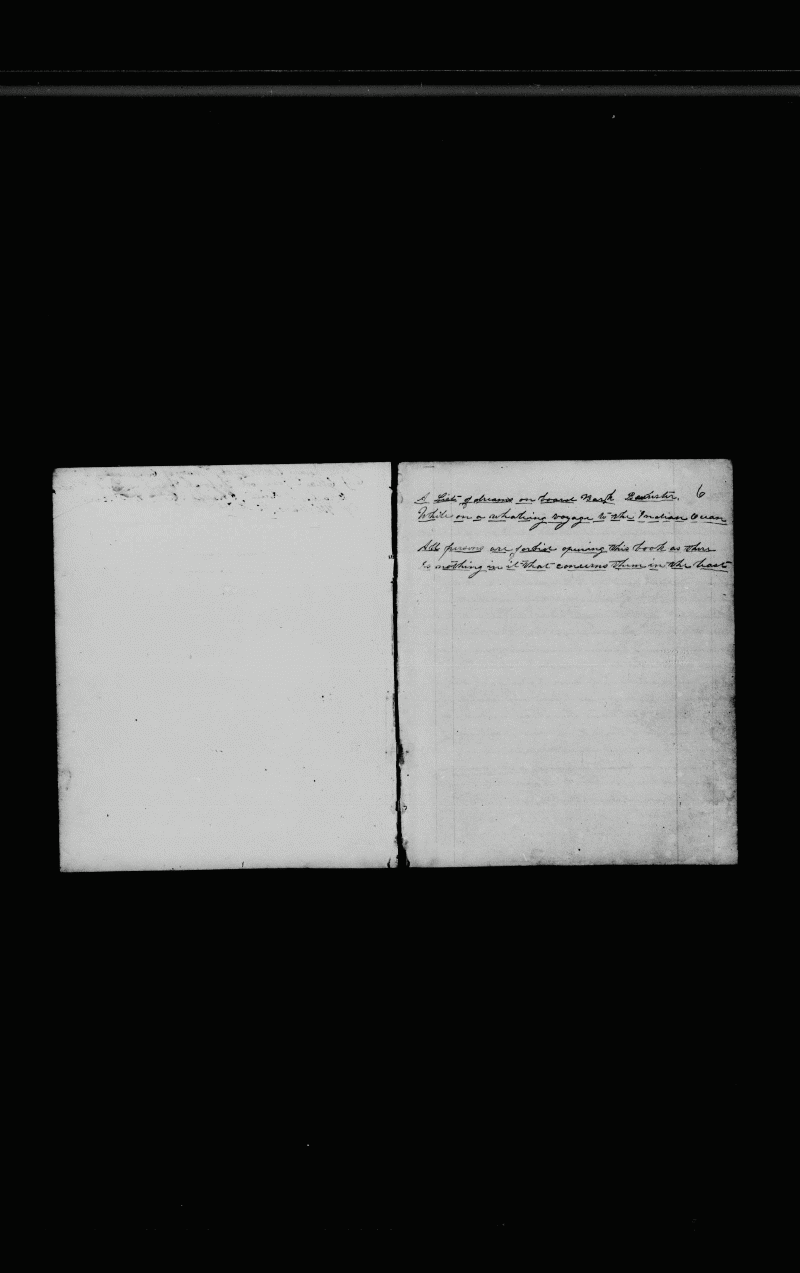 A List of dreams on board Bark 6
While on a whaling voyage to the Indian Ocean
All persons are forbid opening this book as there
is nothing in it that concerns them in the least